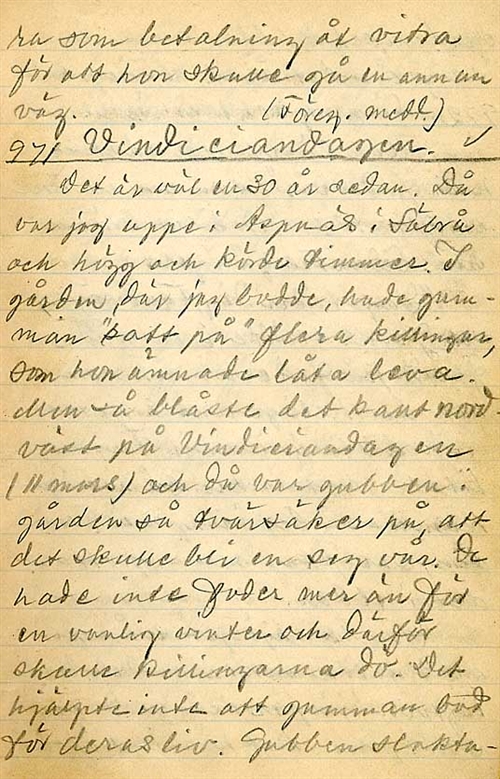 ra som betalning åt vitra
för att hon skulle gå en annan
väg. (Föreg. medd.)
971 Vindiciandagen. ✓
Det är väl en 30 år sedan. Då
var jag uppe i Aspnäs i Säbrå
och högg och körde timmer. I
gården, där jag bodde, hade gum-
man "satt på" flera killingar,
som hon ämnade låta leva.
Men så blåste det kant nord
väst på Vindiciandagen
(11 mars) och då var gubben i
gården så tvärsäker på, att
det skulle bli en seg vår. De
hade inte foder mer än för
en vanlig vinter och därför
skulle killingarna dö. Det
hjälpte inte att gumman bad
för deras liv. Gubben slakta-